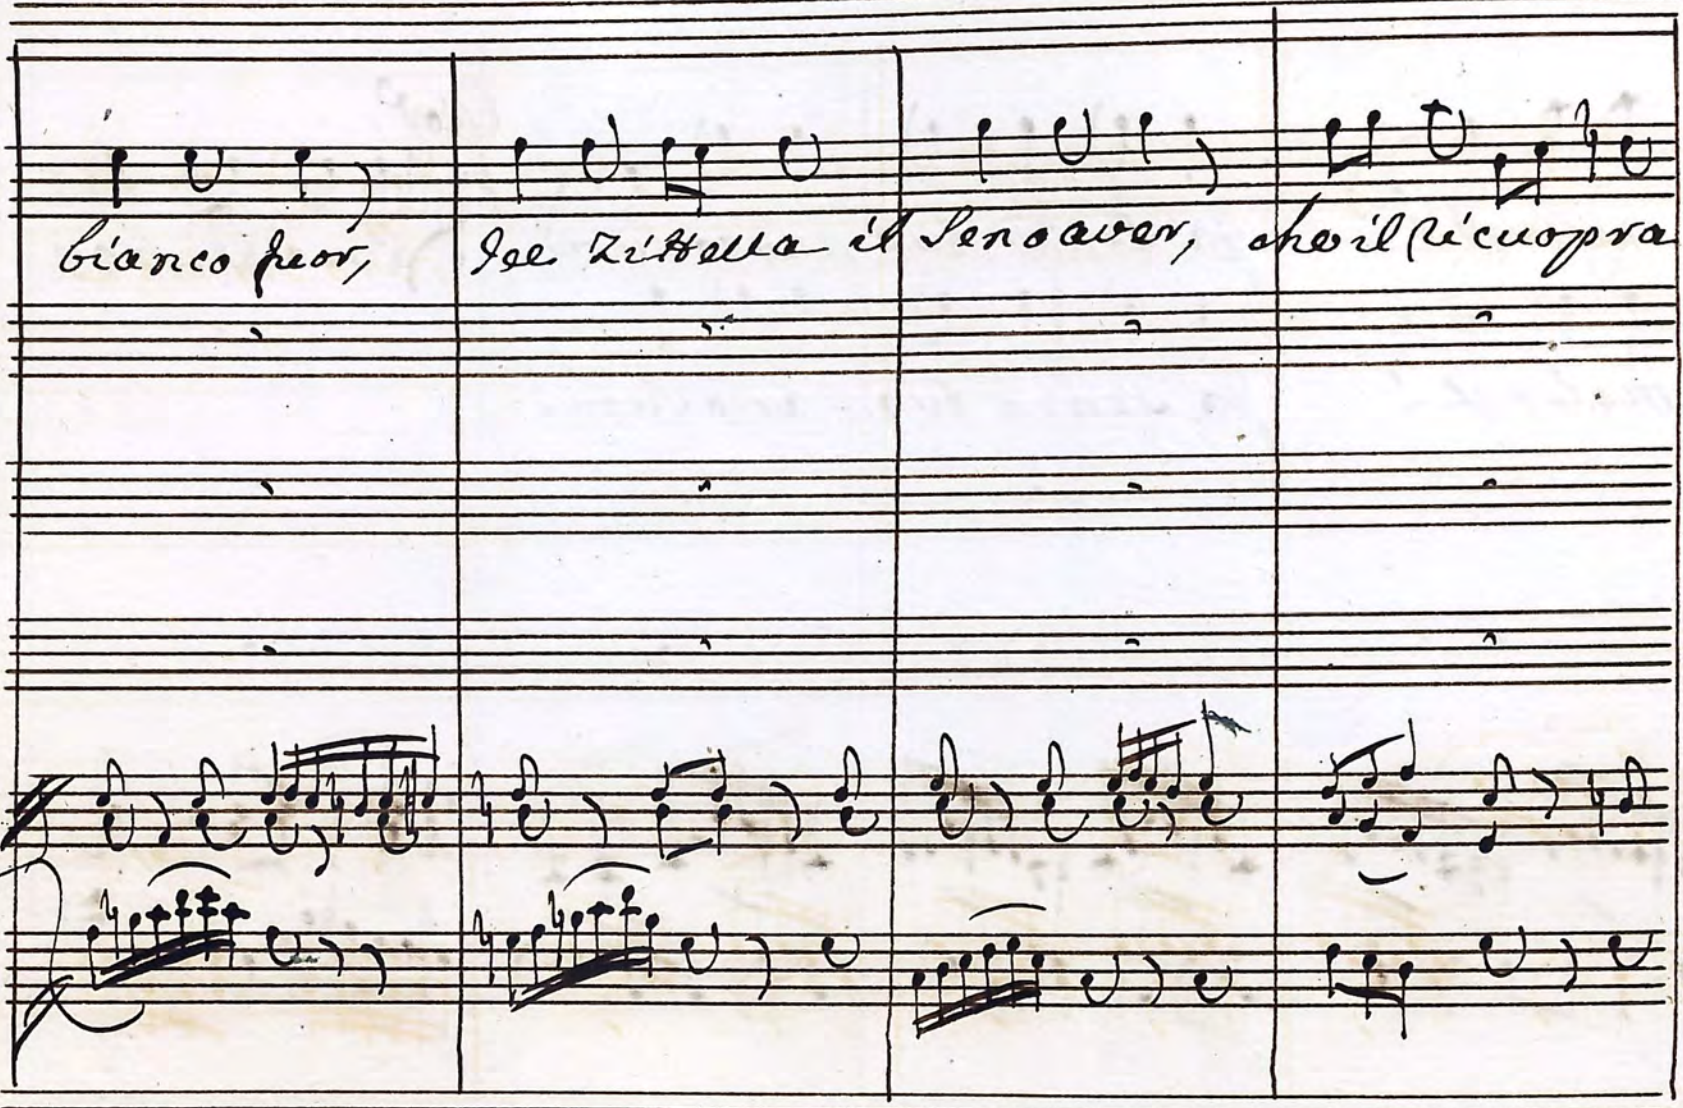 bianco fuor, dee Zittella il Seno aver, che il ricuopra